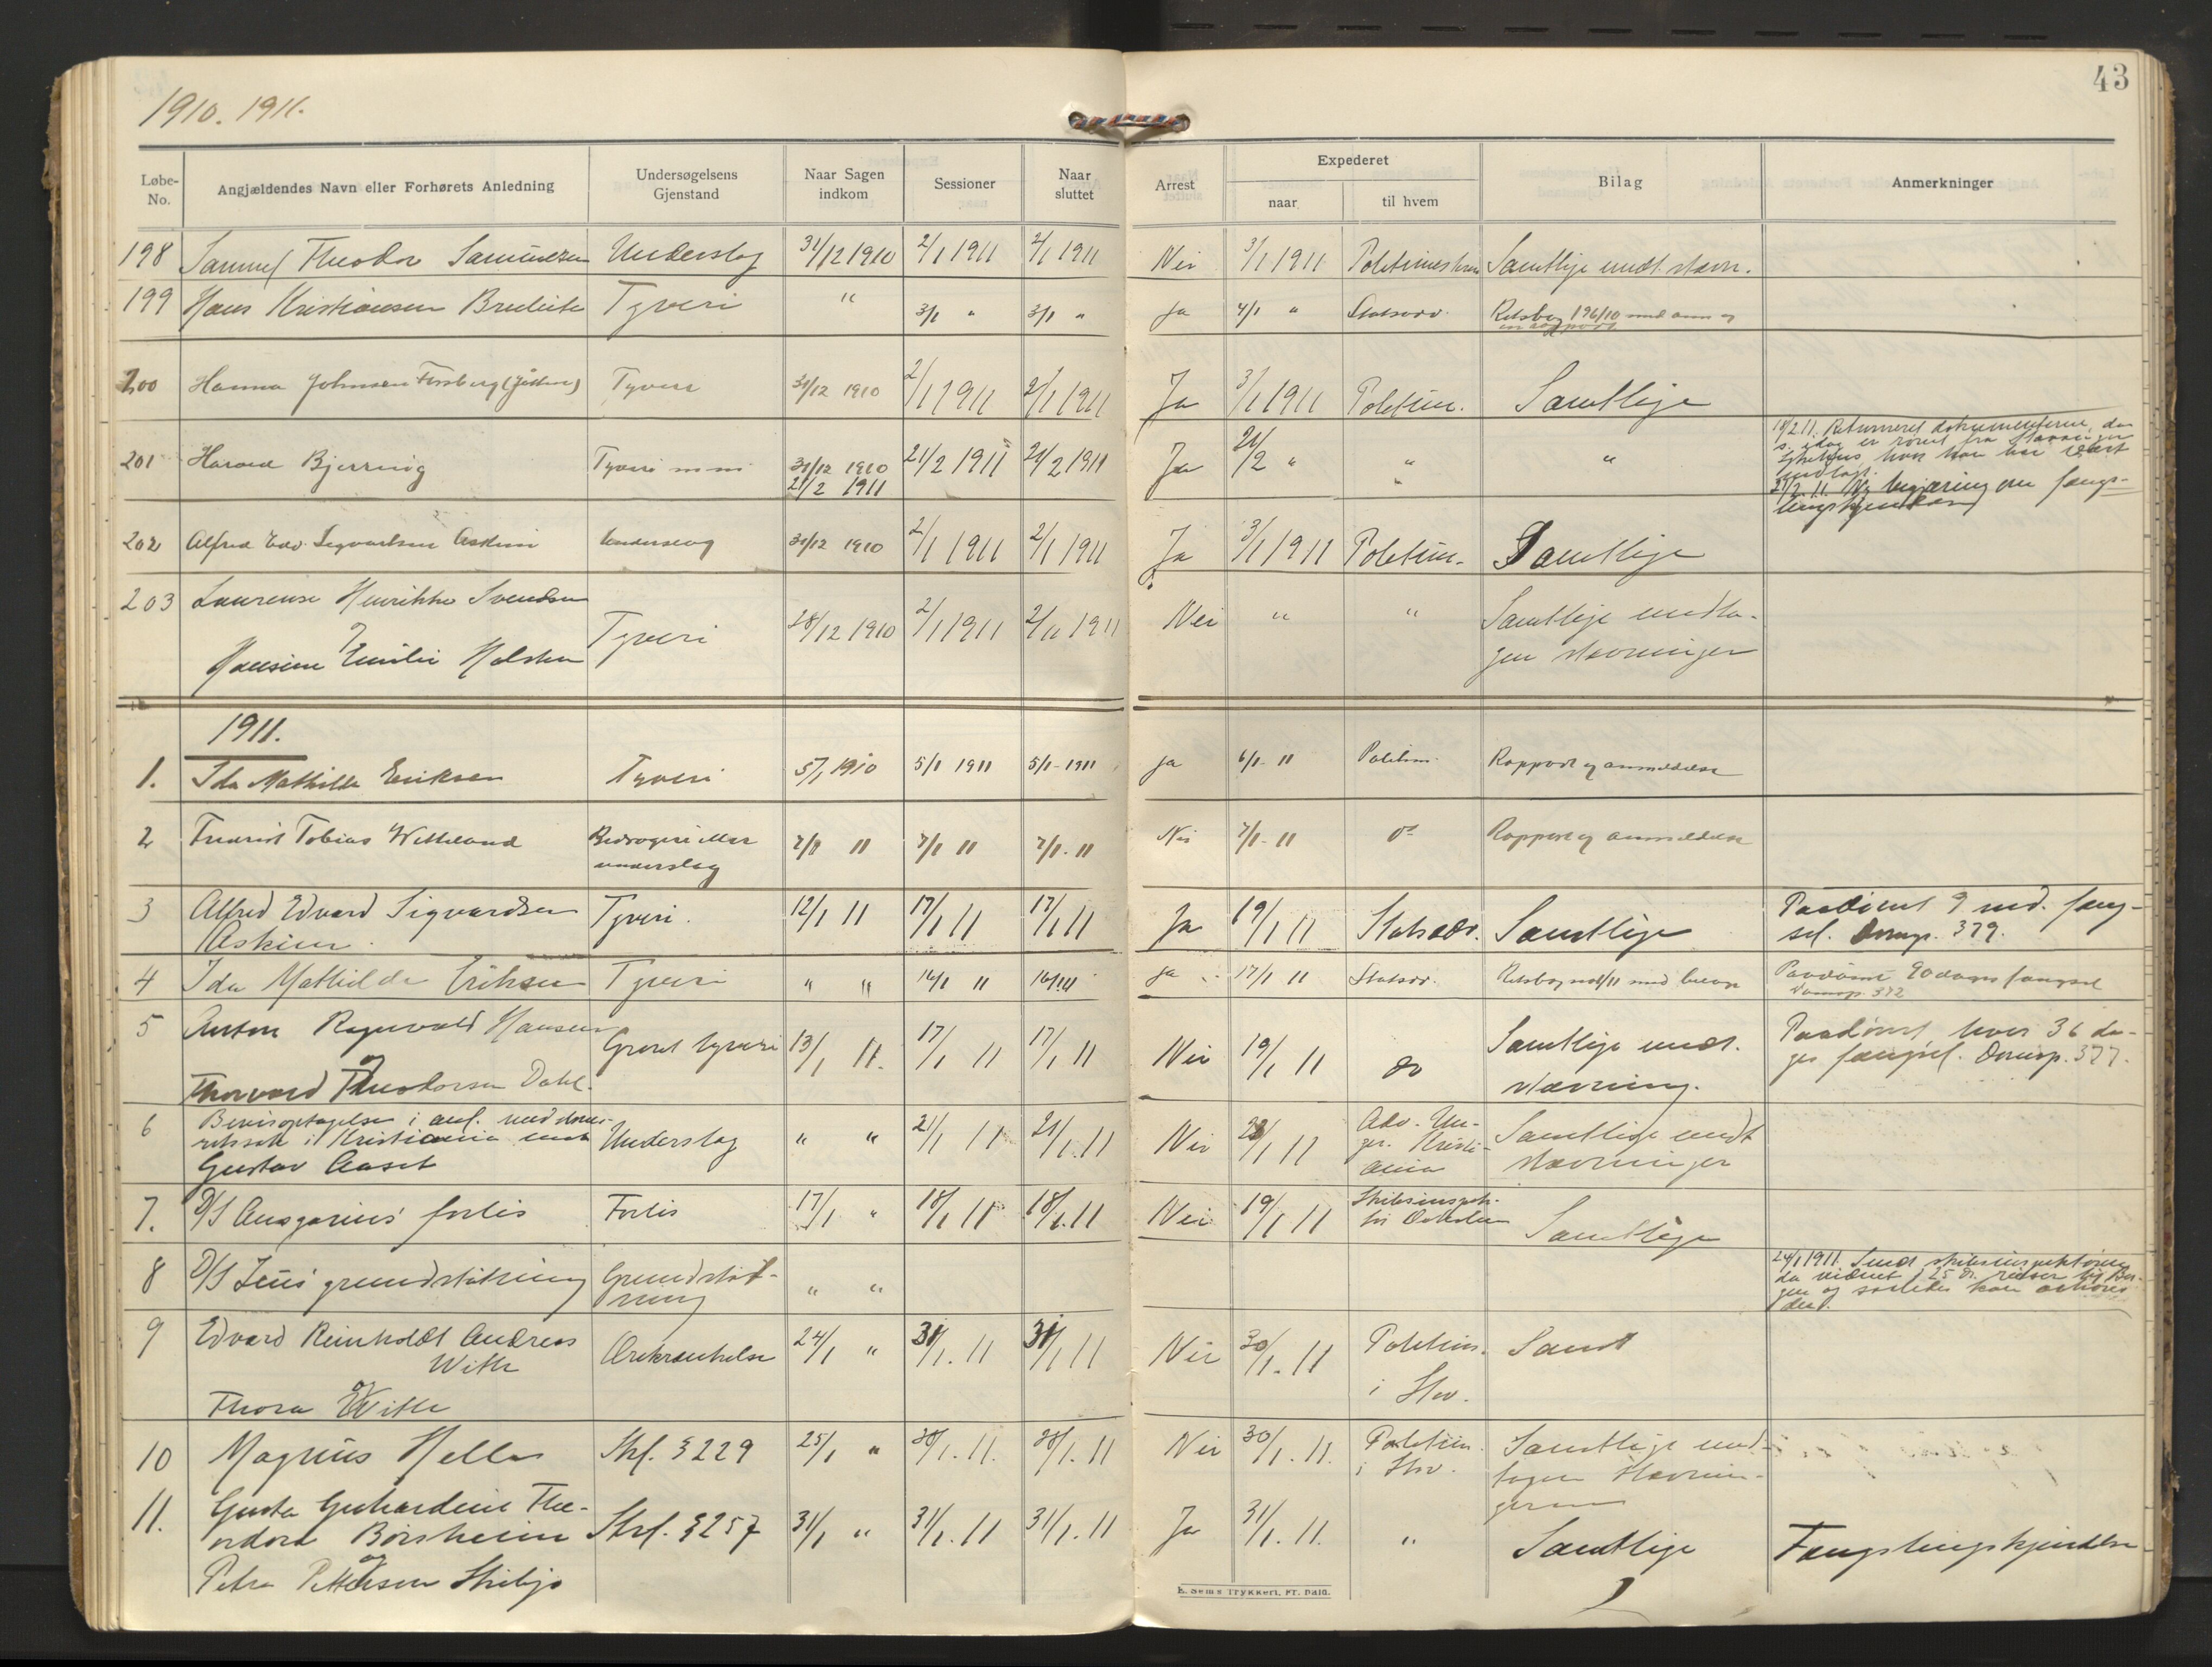 43
1910. 1911.
Løbe-No. Angjældendes Navn eller Forhørets Anledning Undersøgelsens Gjenstand Naar Sagen indkom Sessioner Naar sluttet Arrest Expederet naar til hvem Bilag Anmerkninger
198 Samuel Theodor Samuelsen Underslag 31/12 1910 2/1 1911 2/1 1911 Nei 3/1 1911 Politimesteren Samtlige undt. stævn.
199 Hans Kristiansen Tyveri " 3/1 " 3/1 " Ja 4/1 " Statsadv. Retsbog 196/10 med anm og
en rapport
200 Hanna Johnsen Forsberg Tyveri 31/12 1910 2/1 1911 2/1 1911 Ja 3/1 1911 Politim. Samtlige
201 Harald Bjerring Tyveri m m 31/12 1910 21/2 1911 21/2 1911 Ja 21/2 " " "
21/2 1911
18/2 11. Returneret dokumenterne, da
s. idag er rømt fra Stavanger
sykehus hvor han har været
indlagt.
21/2. 11. Ny begjæring om fængs-
lingskjendelse
202 Alfred Edv. Sigvartsen Askim Underslag 31/12 1910 2/1 1911 2/1 1911 Ja 3/1 1911 Politim. Samtlige
203 Laurense Henrikke Svendsen
og
Hansine Emilie Holsten Tyveri 28/12 1910 2/1 1911 2/1 1911 Nei " " Samtlige undta-
gen stævninger
1911.
1. Ida Mathilde Eriksen Tyveri 5/1 1910 5/1 1911 5/1-1911 Ja 6/1- 11 Politim. Rapport og anmeldelse
2 Fredrik Tobias Wetteland Bedrageri eller
underslag 7/1 11 7/1 11 7/1-11 Nei 7/1-11 do Rapport og anmeldelse
3 Alfred Edvard Sigvardsen
Askim. Tyveri. 12/1 11 17/1 11 17/1 11 Ja 19/1 11 Statsadv. Samtlige Paadømt 9 md. fæng-
sel. Domsp. 379.
4 Ida Mathilde Eriksen Tyveri " " 16/1 11 16/1 11 Ja 17/1 11 Statsadv. Retsbog no 1/11 med bilage Paadømt 90 dages fængsel
Domsp. 372
5 Anton Ragnvald Hansen
og
Thorvard Theodorsen Dahl. Grovt tyveri 13/1 11. 17/1 11 17/1 11 Nei 19/1 11 do Samtlige undt.
stævning. Paadømt hver 36 da-
ges fængsel. Domsp. 377.
6 Bevisoptagelse i anl. med doms-
retssak i Kristiania mot
Gustav Aaset Underslag " " 21/1 11 21/1.11 Nei 23/1 11 Adv. Un-
ger. Kristi-
ania Samtlige undt
stævninger
7. D/S Ansgarius' forlis Forlis 17/1 " 18/1 11 18/1.11 Nei 19/1 11 Skibsinspek-
tør Samtlige
8 D/S Zeus' grundstötning Grundstöt-
ning " "
24/1 1911. Sendt skibsinspektören,
da vidnet J. 25 ds. reiser til Ber-
gen og saaledes kan avhöres
der.
9 Edvard Reinholdt Andreas
Withe
og
Thora Withe Ærekrænkelse 24/1 " 30/1.11 30/1 11 Nei 30/1.11 Politim.
i Stv. Samt
10 Magnus Helle Strf. § 229 25/1 " 30/1.11. 30/1.11 Nei 30/1.11. Politim.
i Stv. Samtlige und-
tagen stævnin-
gerne
11. Gusta Gerhardine The-
odora Börsheim
og
Petra Pettersen Skibsjø Strf. § 257 31/1 " 31/1.11 31/1.11 Ja 31/1.11. " Samtlige Fængslingskjendelse
E. Sems Trykkeri, Fr. Hald.